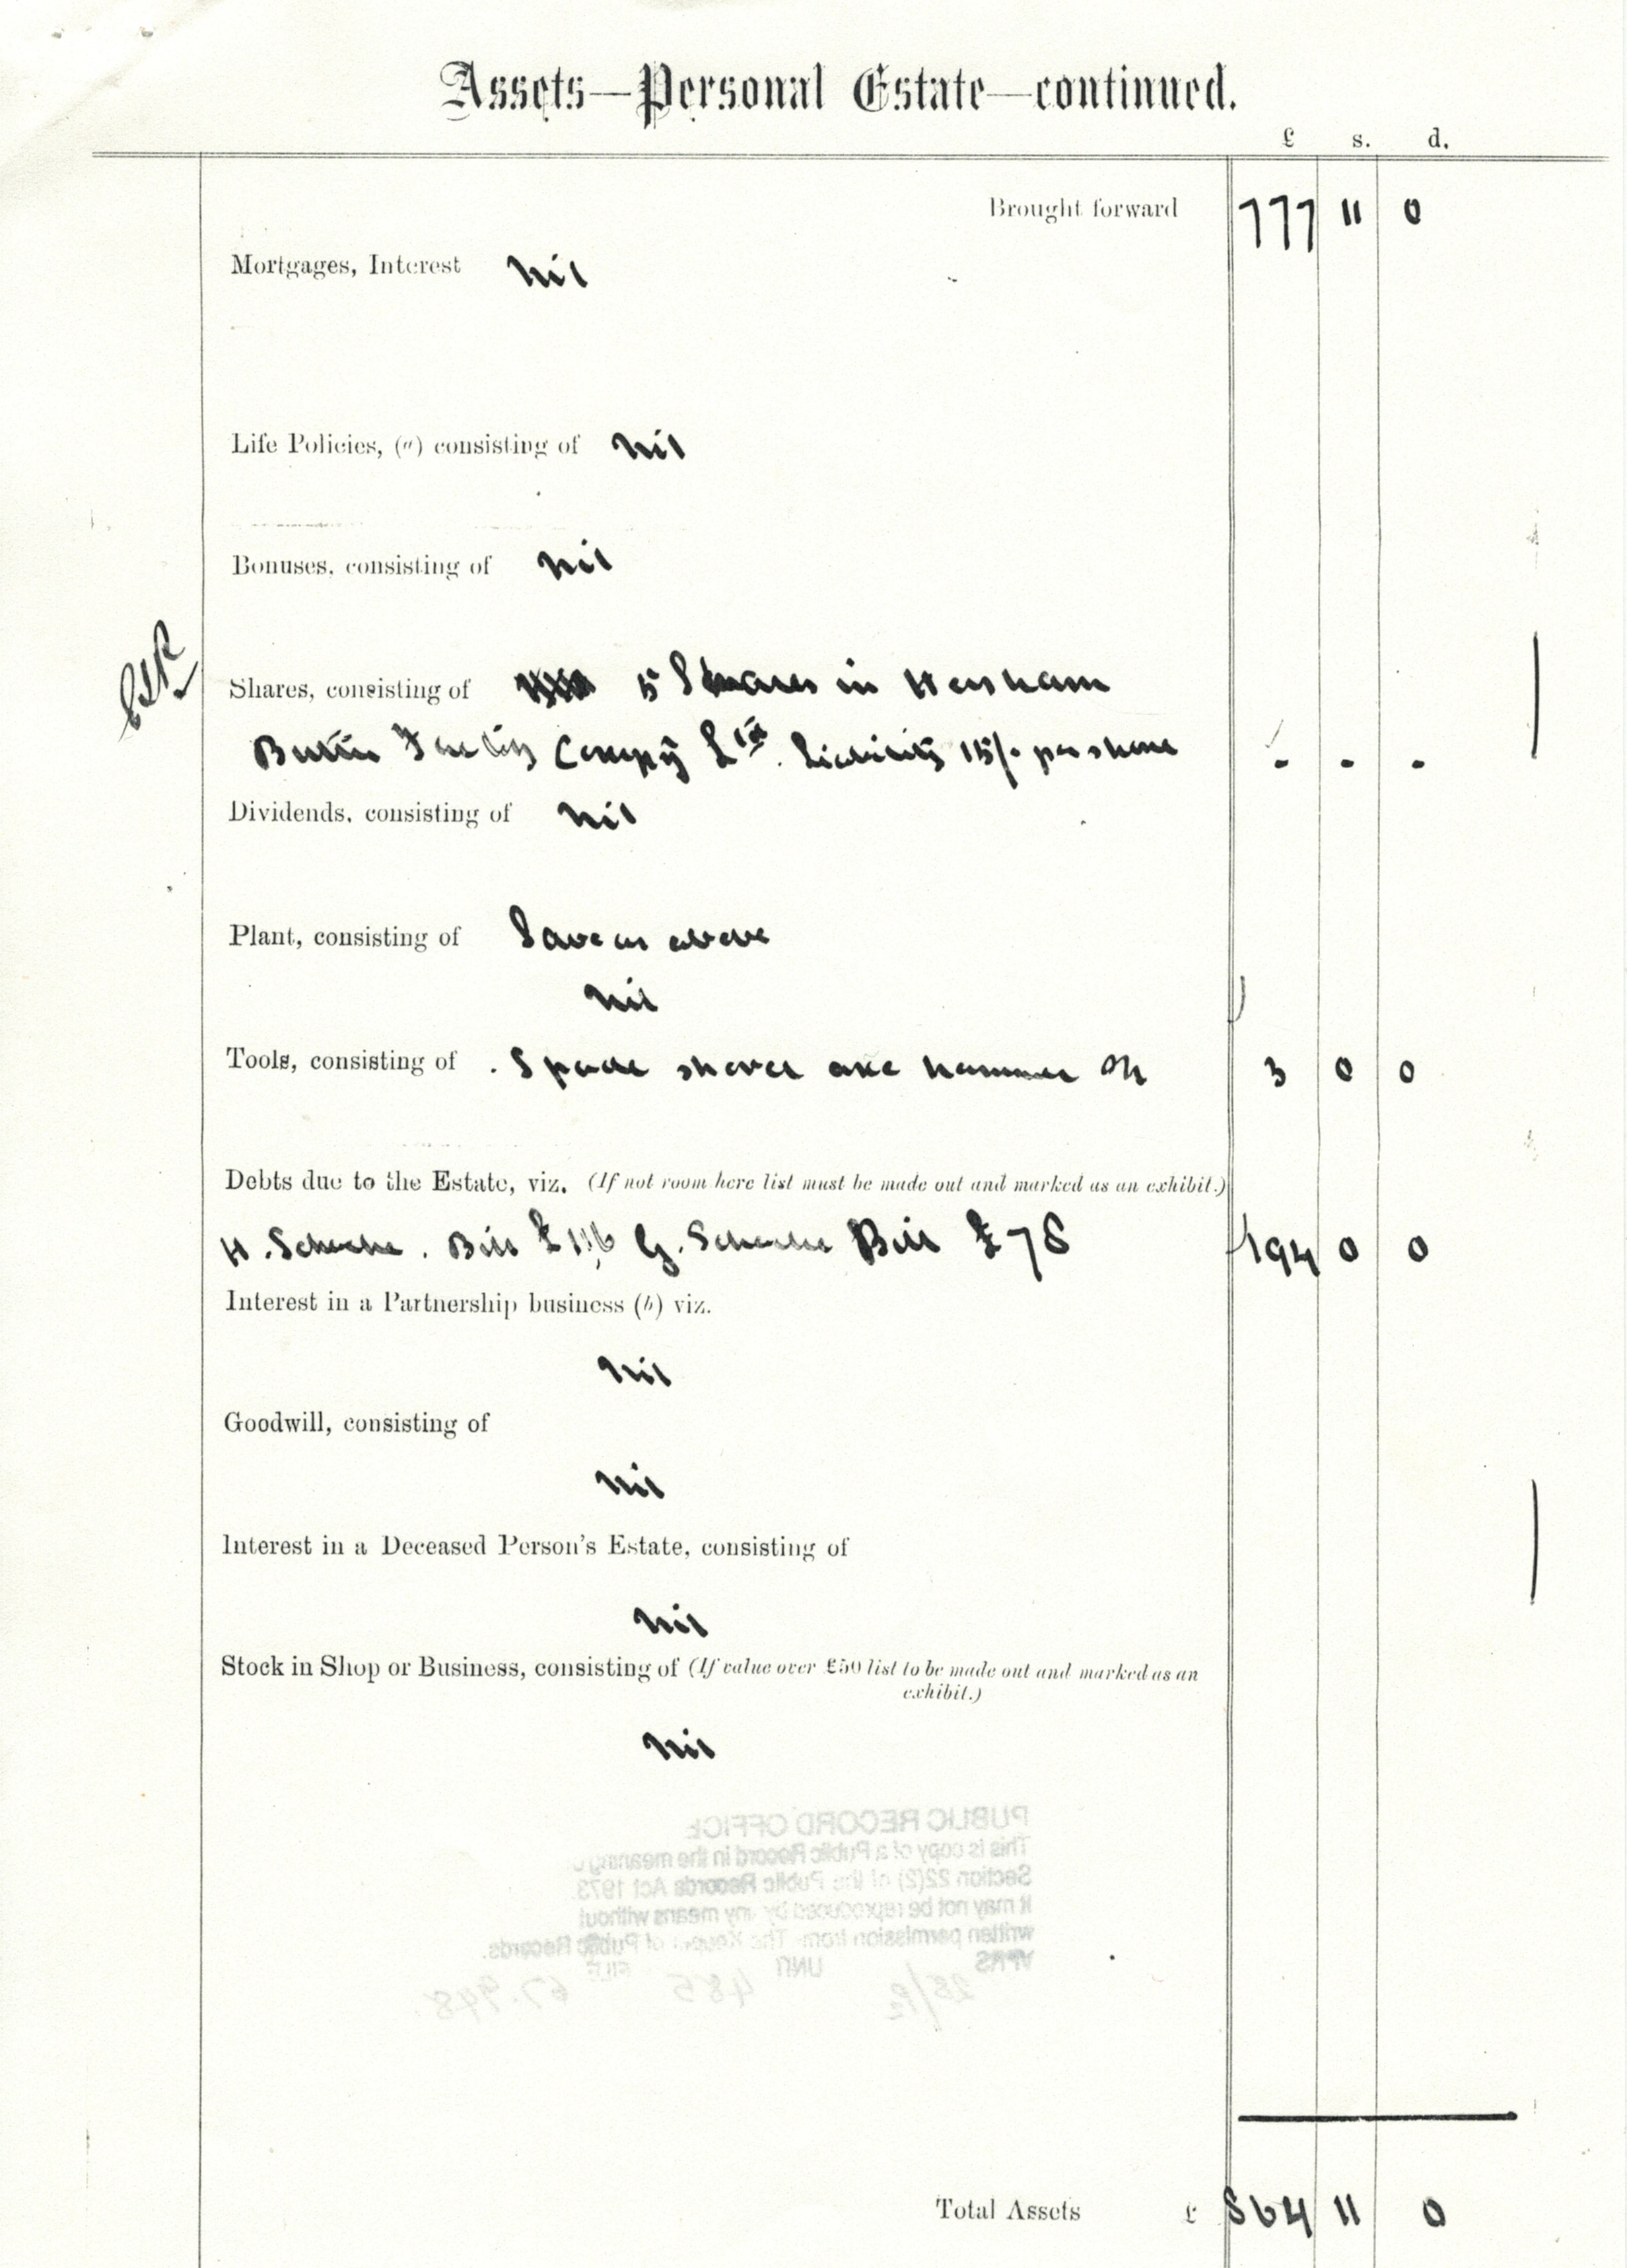 Assets—Personal Estate—continued.
£ s. d.
Brought forward 777 11 0
Mortgages, Interest nil
Life Policies, (a) consisting of nil
Bonuses, consisting of nil
Shares, consisting of 5 Shares in Horsham
Butter Factory Compy Ltd. Liability 15/- per share - - -
Dividends, consisting of nil
Plant, consisting of Save as above
nil
Tools, consisting of Spade shovel axe hammer &c 3 0 0
Debts due to the Estate, viz. (If not room here list must be made out and marked as an exhibit.)
H. Bill £116 G. Bill £78 194 0 0
Interest in a Partnership business (b) viz.
nil
Goodwill, consisting of
nil
Interest in a Deceased Person's Estate, consisting of
nil
Stock in Shop or Business, consisting of (If value over £50 list to be made out and marked as an
exhibit.)
nil
PUBLIC RECORD OFFICE
This is copy of a Public Record in the meaning
Section 22(2) of the Public Records Act 1973
It may not be reproduced by any means without
written permission from The Keeper of Public Records.
VPRS UNIT FILE
28/P2 485 67.948
Total Assets £ 864 11 0